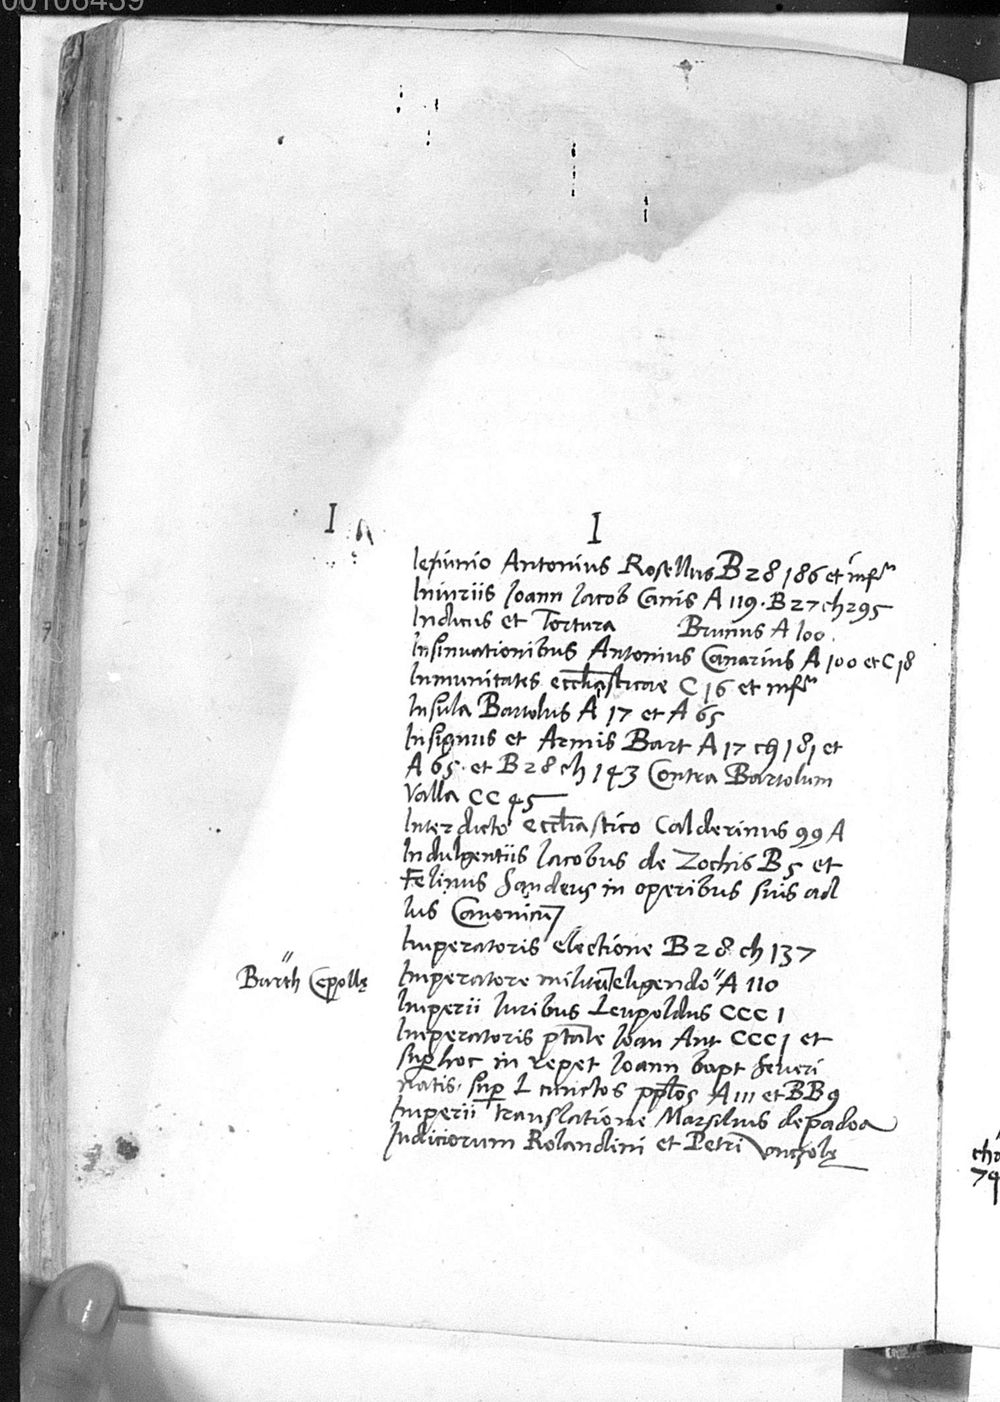 00106439
I
I
Ieiunio Antonius Rosellus B 28 186 et infr
Iniuriis Ioann Iacob Canis A 119. B 27 ch 295
Indicus et Tortura Brunus A 100.
Insinuationibus Antonius Canarius A 100 et C 18
Inmunitates eccliasticae C 16 et infr
Insula Bartolus A 17 et A 65
Insignius et Armis Bart A 17 ch 181 et
A 65. et B 28 ch 143 Contra Bartolum
Valla CC 45
Interdicto eccliastico Calderinus 99 A
Indulgentiis Iacobus de Zochis B 5 et
Felinus Sandeus in operibus suis ad
Ius Canonicu
Imperatoris electione B 28 ch 137
Barth Cepollę
Imperatore militu eligendo " A 110
Imperii Iuribus Leupoldus CCC 1
Imperatoris ptate Ioan Ant CCC 1 et
sup hoc in repet Ioann bapt Severi
natis. sup L cunctos pplos A 111 et BB 9
Imperii translatione Marsilius de padoa
Iudiciorum Rolandini et Petri Unczolę
ch
79